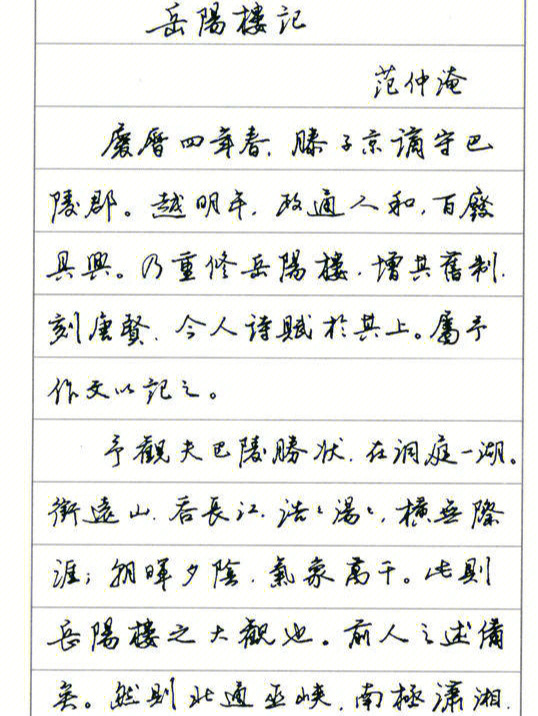 岳陽樓記
范仲淹
慶曆四年春、滕子京謫守巴
陵郡。越明年，政通人和，百廢
具興。乃重修岳陽樓，增其舊制，
刻唐賢、今人詩賦於其上。屬予
作文以記之。
予觀夫巴陵勝狀，在洞庭一湖。
銜遠山、吞長江，浩〻湯〻，橫無際
涯；朝暉夕陰，氣象萬千。此則
岳陽樓之大觀也。前人之述備
矣。然則北通巫峽，南極瀟湘，